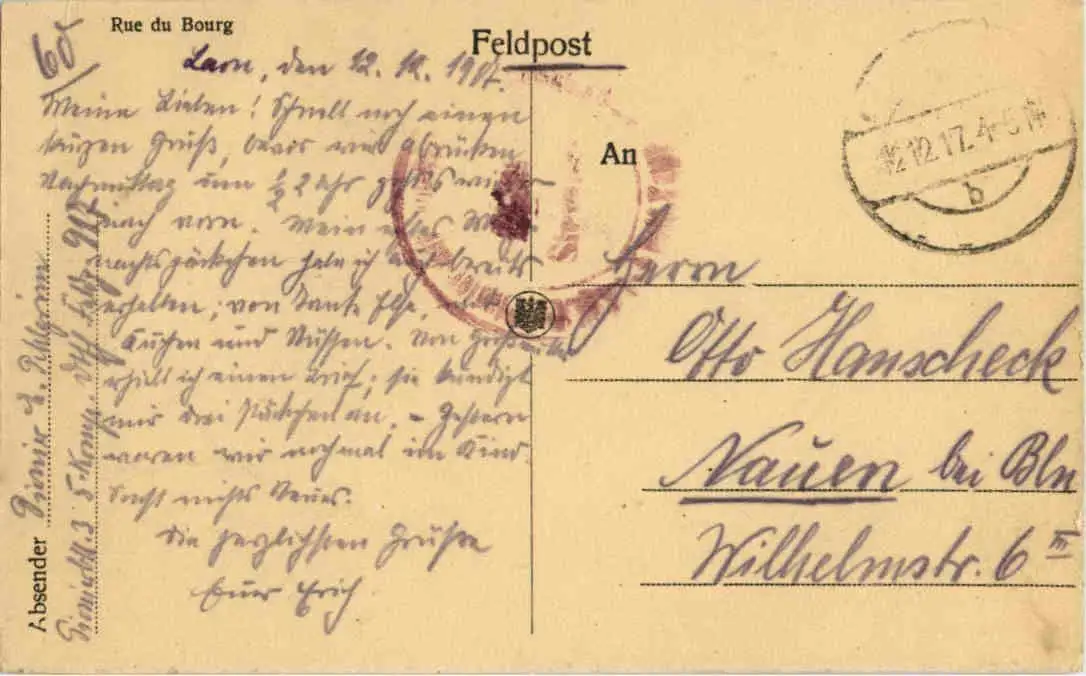 Rue du Bourg
60
Feldpost
Laon, den 12. 12. 1917.
Meine Lieben! Schnell noch einen
kurzen Gruß, bevor wir abrücken
Nachmittag um ½ 2 Uhr geht's wieder
nach vorn. Mein erstes Weih-
nachtspäckchen habe ich auch bereits
erhalten; von Tante Else, mit
Kuchen und Nüssen. Von Großmutter
erhielt ich einen Brief; sie kündigt
mir drei Päckchen an. – Gestern
waren wir nochmal im Kino.
Sonst nichts Neues.
Die herzlichsten Grüße
Euer Erich
Absender Pionier E.
5. Komp.
An
Herrn
Otto Hanscheck
Nauen bei Bln
Wilhelmstr. 6 III
12.12.17. 4-5 N
b